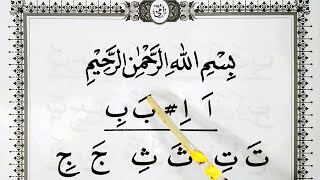 بِسْمِ اللهِ الرَّحْمٰنِ الرَّحِيْمِ
اَ اِ # بَ بِ
تَ تِ ثَ ثِ جَ جِ